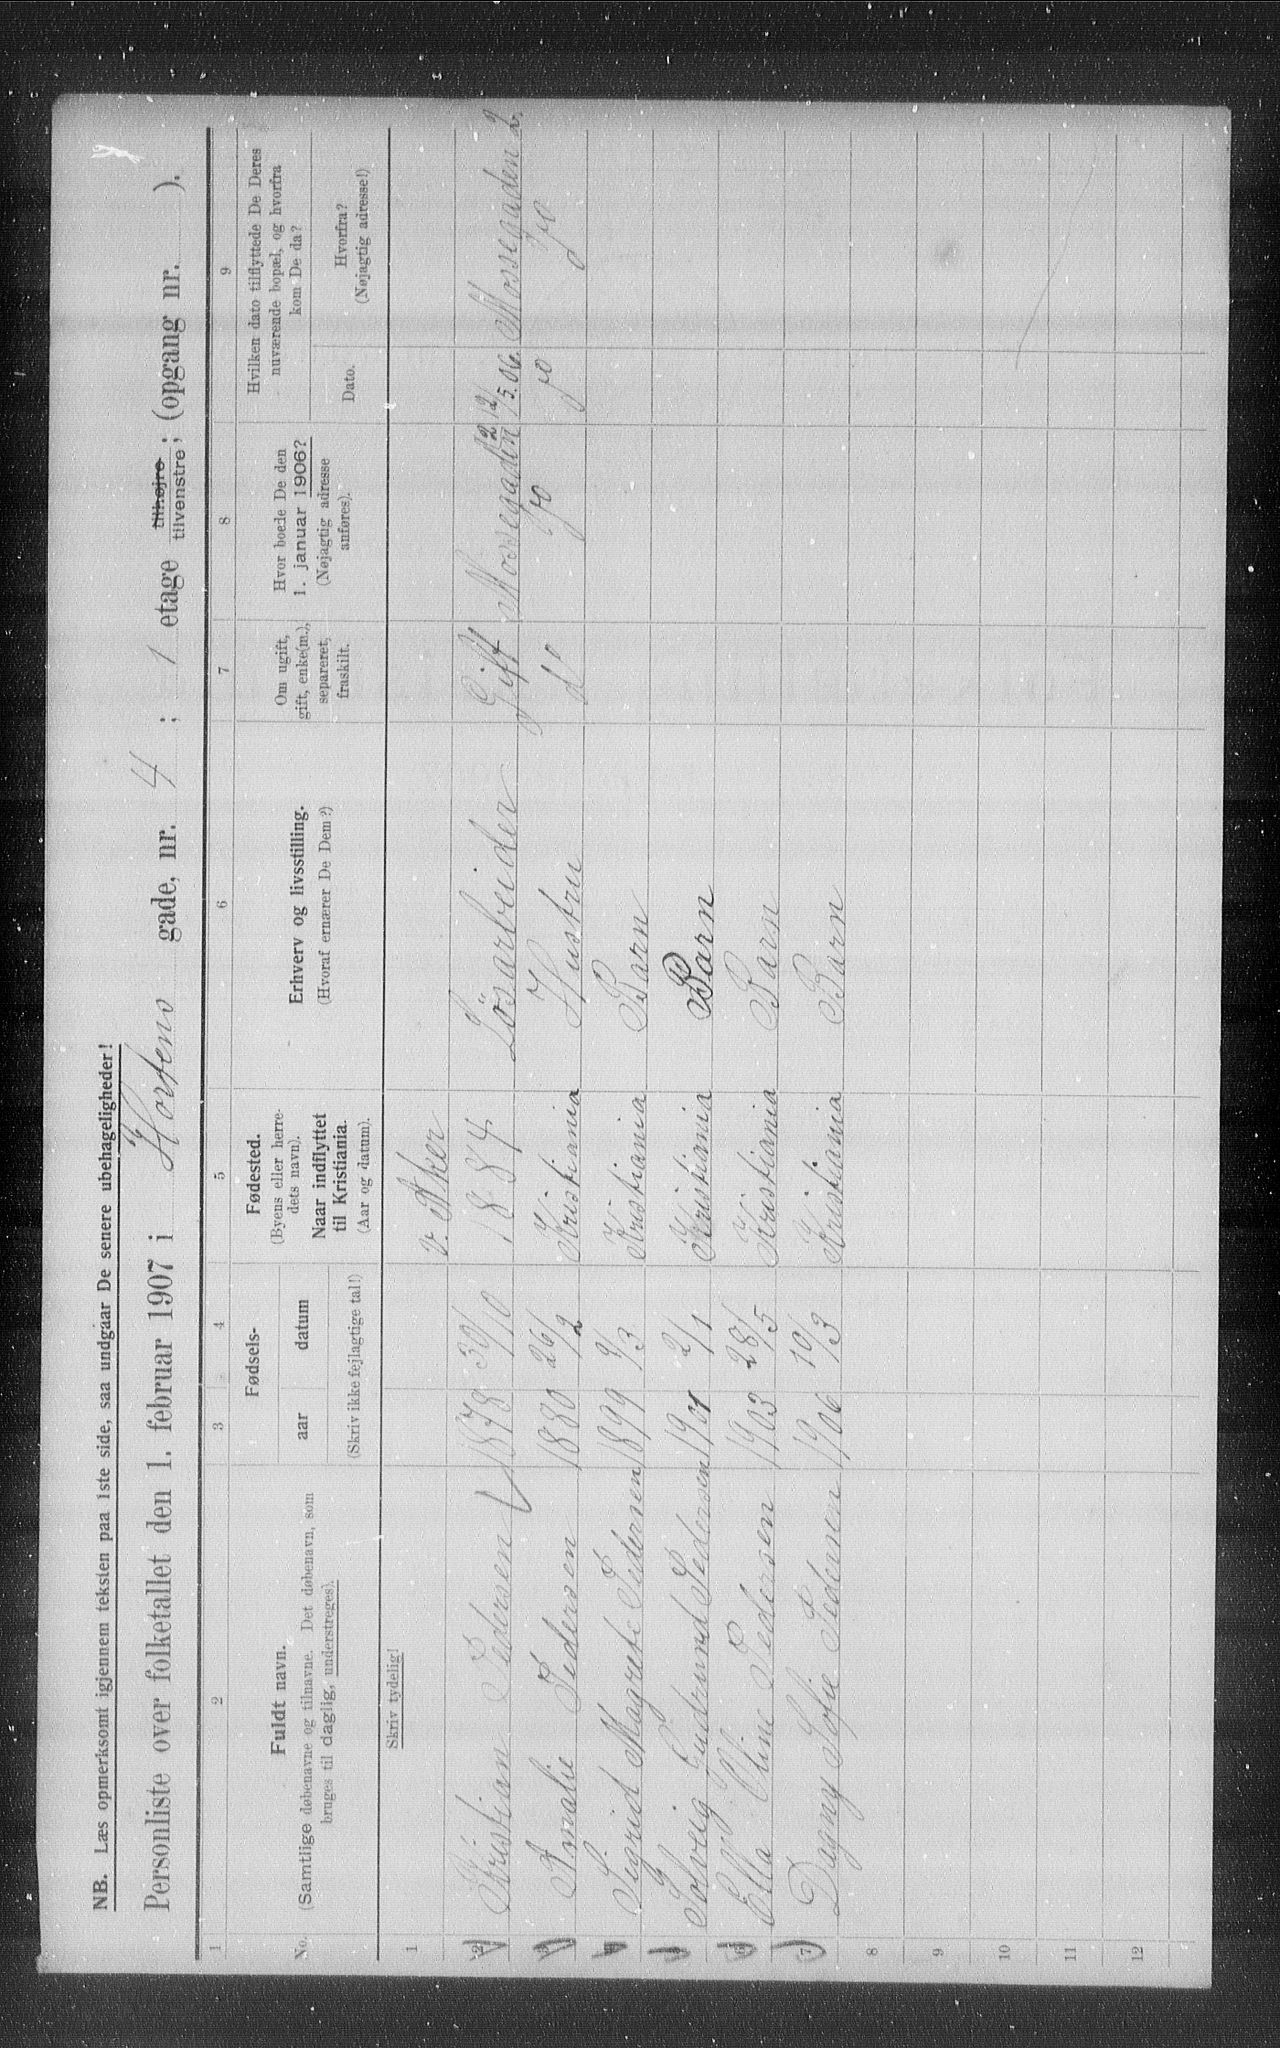 NB. Læs opmerksomt igjennem teksten paa 1ste side, saa undgaar De senere ubehageligheder!
Personliste over folketallet den 1. februar 1907 i Hortens gade, nr. 4 ; 1 etage tilhøjre tilvenstre ; (opgang nr. ).
1 2 3 4 5 6 7 8 9
No.
Fuldt navn.
(Samtlige døbenavne og tilnavne. Det døbenavn, som
bruges til daglig, understreges).
Fødsels-
aar datum
(Skriv ikke fejlagtige tal!)
Fødested.
(Byens eller herre-
dets navn).
Naar indflyttet
til Kristiania.
(Aar og datum).
Erhverv og livsstilling.
(Hvoraf ernærer De Dem?)
Om ugift,
gift, enke(m.),
separeret,
fraskilt.
Hvor boede De den
1. januar 1906?
(Nøjagtig adresse
anføres).
Hvilken dato tilflyttede De Deres
nuværende bopæl, og hvorfra
kom De da?
Dato.
Hvorfra?
(Nøjagtig adresse!)
Skriv tydelig!
1 v. Aker
2 Kristian Pedersen 1878 30/10 1884 Lösarbeider Gift Mossegaden 2 12/5.06. Mossegaden 2.
3 Amalie Pedersen 1880 26/2 Kristiania Hustru do do do do
4 Sigrid Magrete Pedersen 1899 9/3 Kristiania Barn
5 Solveig Gudrund Pedersen 1901 2/1 Kristiania Barn
6 Ella Oline Pedersen 1903 28/5 Kristiania Barn
7 Dagny Sofie Pedersen 1906 10/3 Kristiania Barn
8
9
10
11
12